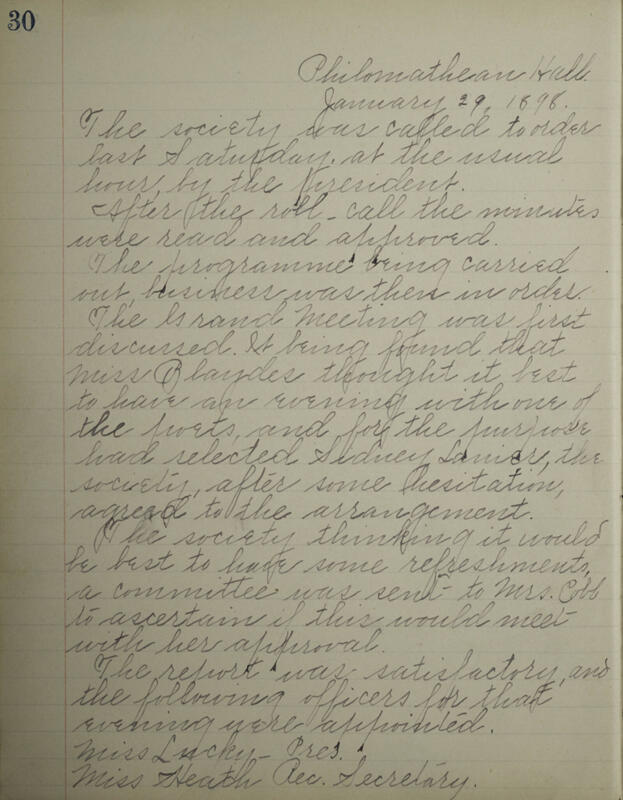 30
Philomathean Hall.
January 29, 1898.
The society was called to order
last Saturday, at the usual
hour, by the President.
After the roll-call the minutes
were read and approved.
The programme being carried
out, business was then in order.
The Grand Meeting was first
discussed. It being found that
Miss Blaydes thought it best
to have an evening with one of
the poets, and for the purpose
had selected Sidney Lanier, the
society, after some hesitation,
agreed to the arrangement.
The society thinking it would
be best to have some refreshments,
a committee was sent to Mrs. Cobb
to ascertain if this would meet
with her approval.
The report was satisfactory, and
the following officers for that
evening were appointed.
Miss Lucky - Pres.
Miss Heath Rec. Secretary.